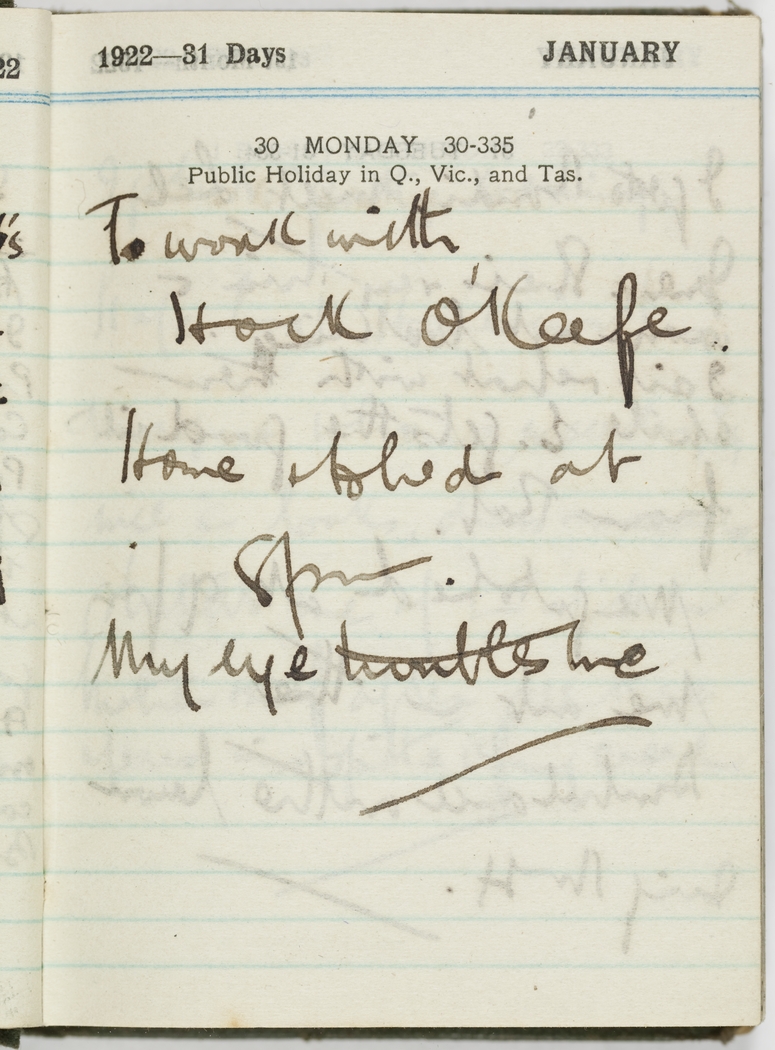 22
1922—31 Days JANUARY
30 MONDAY 30-335
Public Holiday in Q., Vic., and Tas.
To work with
Hock O'Keefe.
Home to bed at
8pm.
My eye troubles me